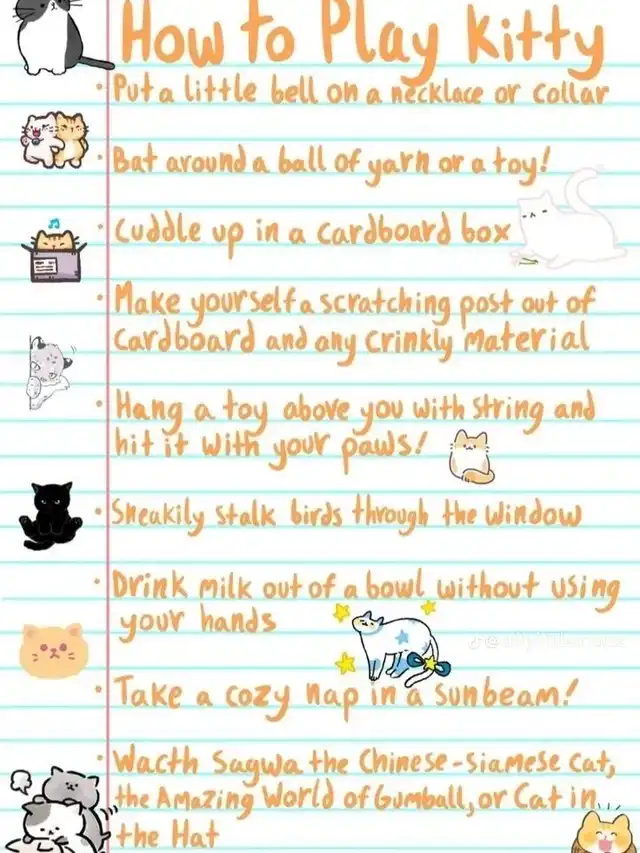 How to Play kitty
• Put a little bell on a necklace or collar
• Bat around a ball of yarn or a toy!
• Cuddle up in a cardboard box
• Make yourself a scratching post out of
cardboard and any crinkly material
• Hang a toy above you with string and
hit it with your paws!
• Sneakily stalk birds through the window
• Drink milk out of a bowl without using
your hands
• Take a cozy nap in a sunbeam!
• Wacth Sagwa the Chinese-siamese cat,
the Amazing World of Gumball, or Cat in
the Hat